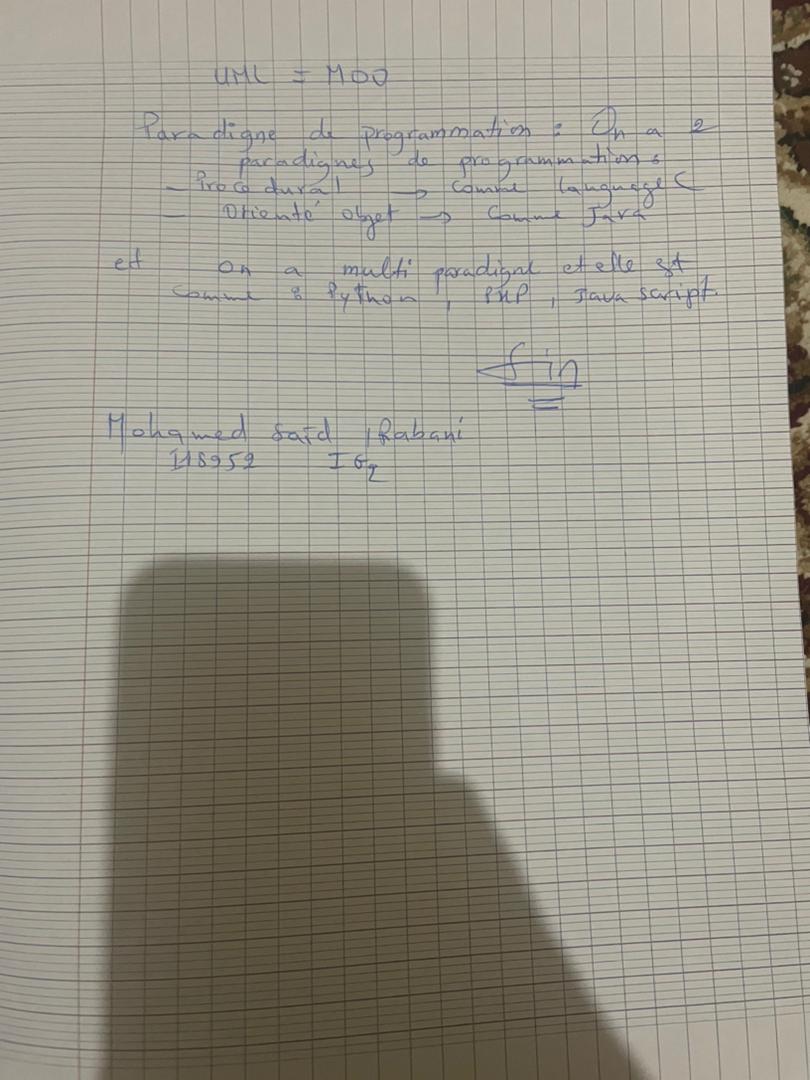 UML = MOO
Paradigne de programmation : On a 2
paradignes de programmations
- Procédural → comme language C
- Orienté objet → Comme Java
et on a multi paradigne et elle est
comme : Python, PHP, Java script.
fin
Mohamed Said Rabani
I18952 IG2